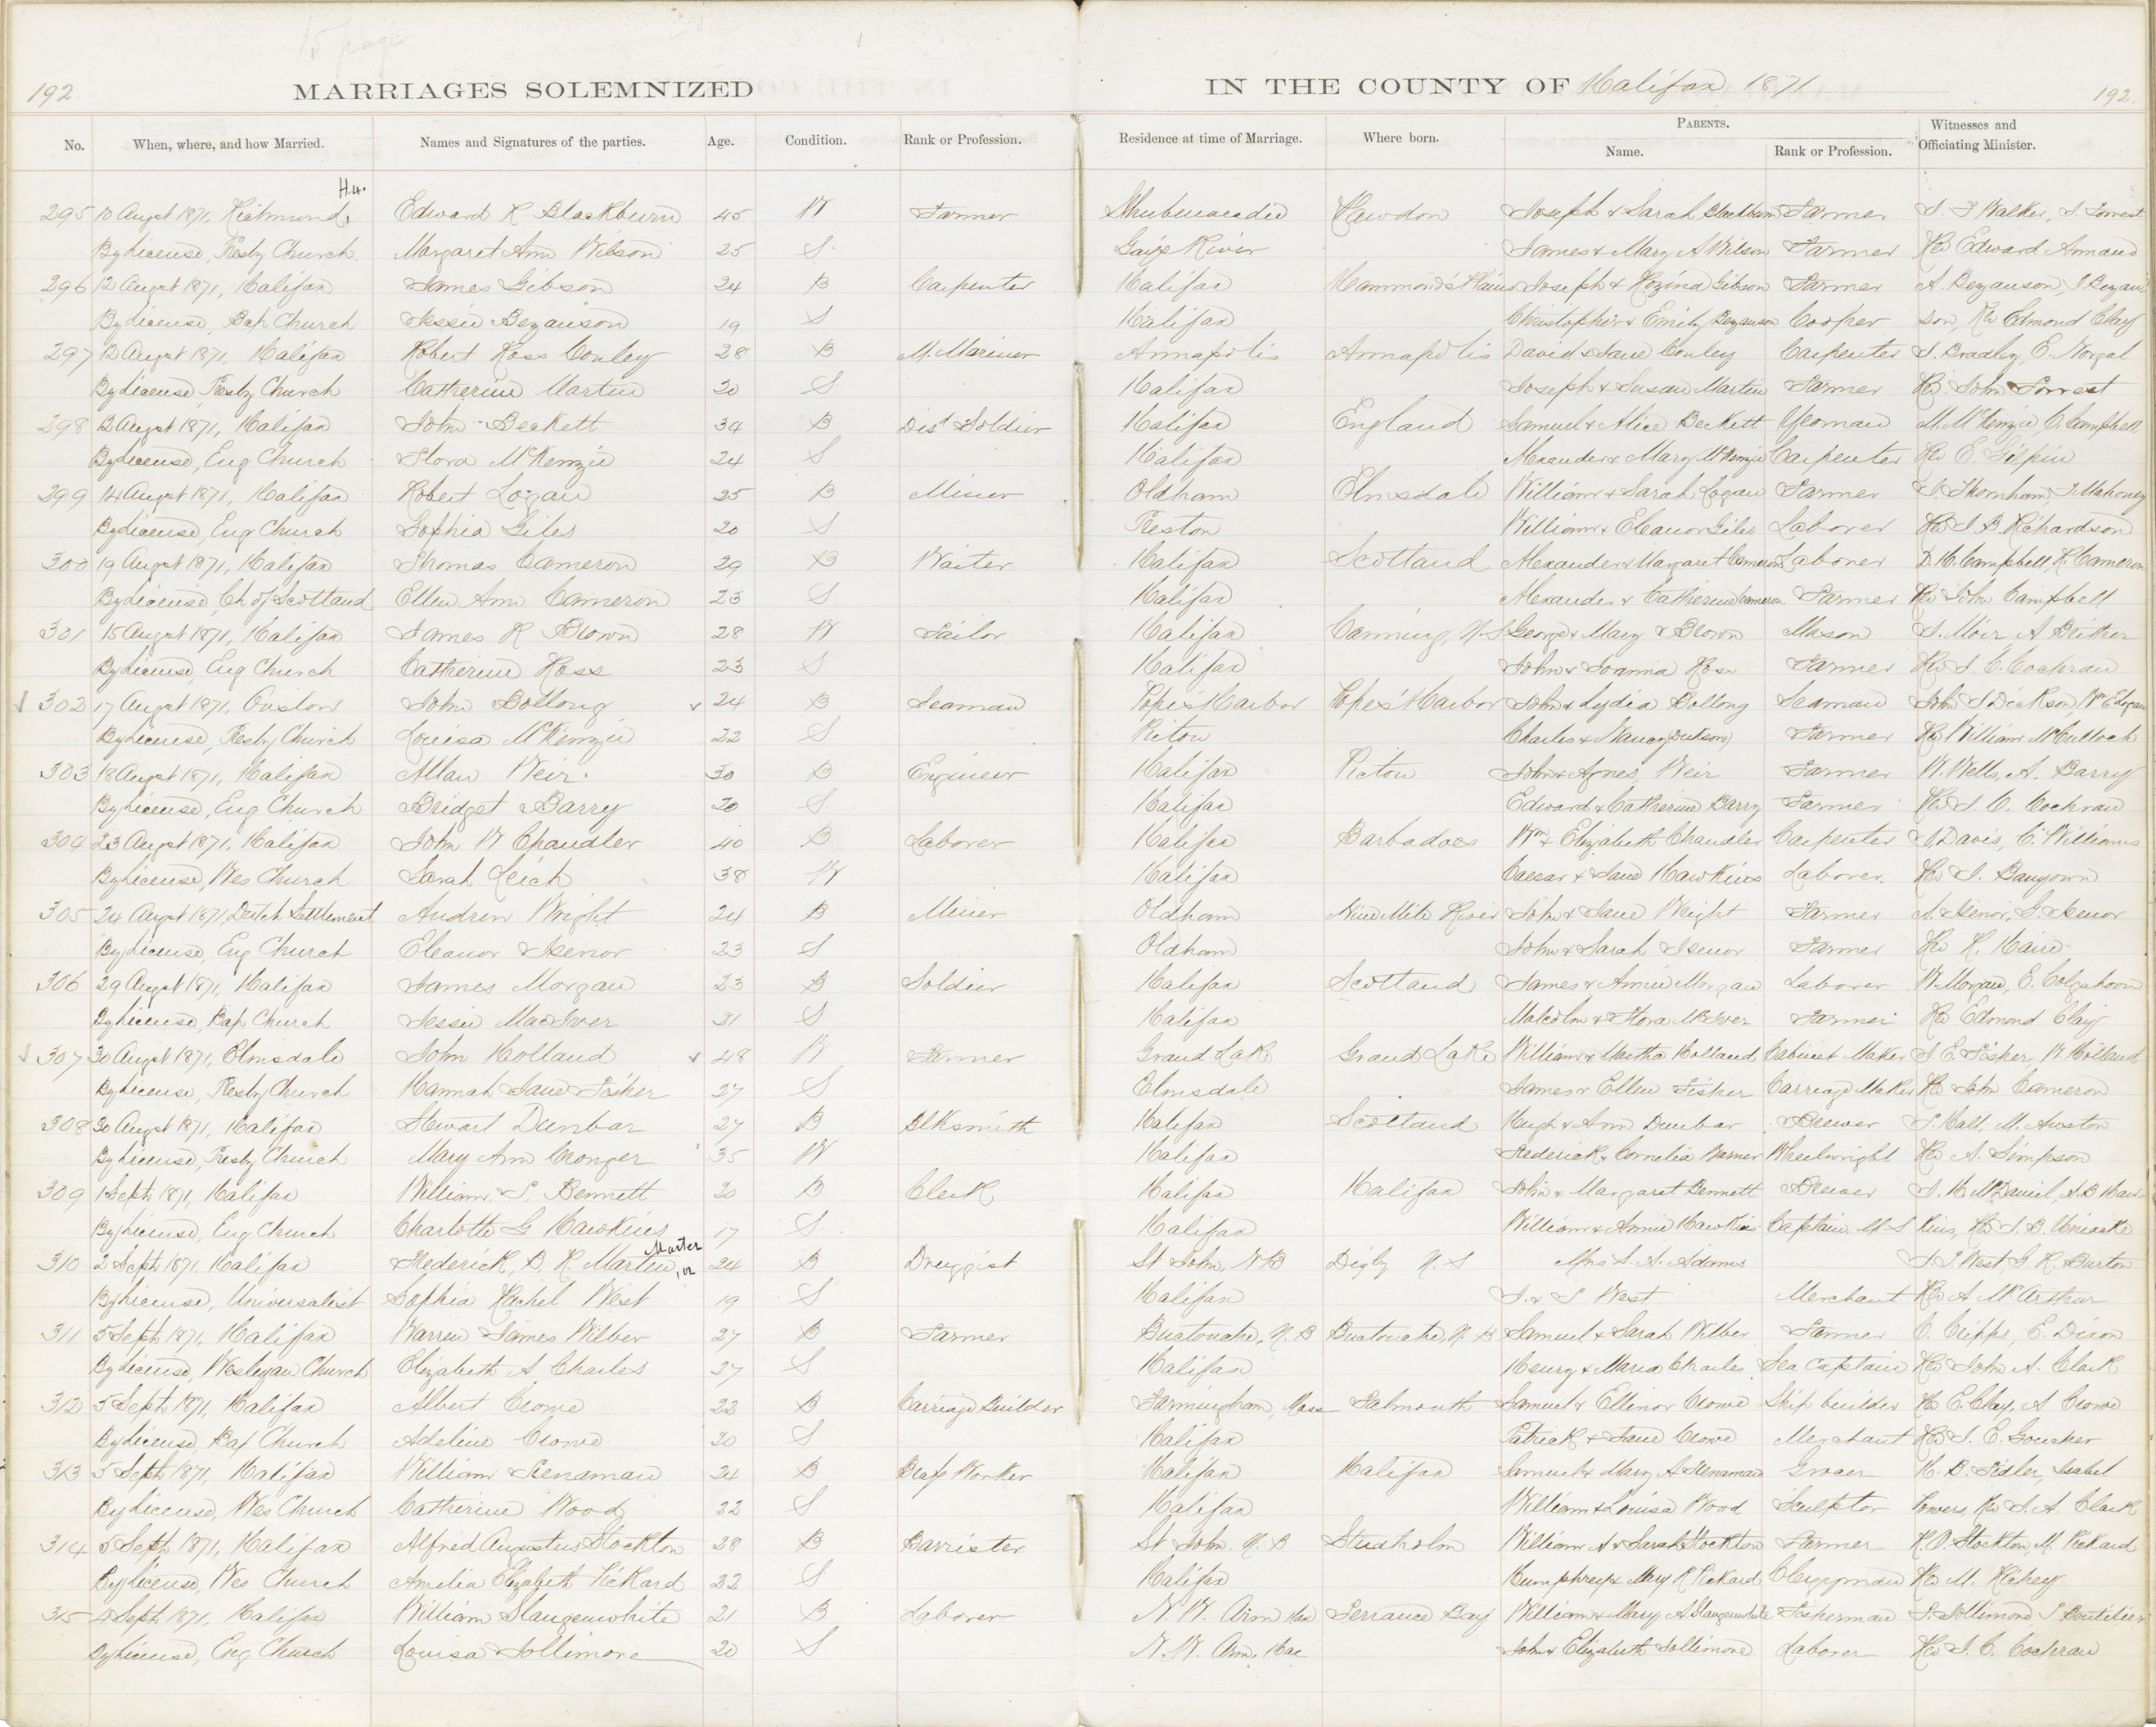 15 page
192 MARRIAGES SOLEMNIZED IN THE COUNTY OF Halifax 1871 192
No. When, where, and how Married. Names and Signatures of the parties. Age. Condition. Rank or Profession. Residence at time of Marriage. Where born. PARENTS. Name. Rank or Profession. Witnesses and Officiating Minister.
295 10 Augst 1871, Richmond, Edward R Blackburn 45 W Farmer Shubenacadie Rawdon Joseph & Sarah Blackburn Farmer J. F Walker, J. Forrest
By License, Presby Church Margaret Ann Wilson 25 S. Gay's River James & Mary A Wilson Farmer Rev Edward Annand
296 12 Augst 1871, Halifax James Gibson 24 B Carpenter Halifax Hammond's Plains Joseph & Rozina Gibson Farmer A. Bezanson, J Bezan
By License, Bap Church Jessie Bezanson 19 S Halifax Christopher & Emily Bezanson Cooper son, Rev Edmond Clay
297 12 Augst 1871, Halifax Robert Ross Conley 28 B M. Mariner Annapolis Annapolis David & Jane Conley Carpenter J. Bradley, E.
By License, Presby Church Catherine Martin 20 S Halifax Joseph & Susan Martin Farmer Rev John Forrest
298 12 Augst 1871, Halifax John Beckett 34 B Disd Soldier Halifax England Samuel & Alice Beckett Yeoman M. McKenzie, C. Campbell
By License, Eng Church Flora McKenzie 24 S Halifax Alexander & Mary McKenzie Carpenter Rev E. Gilpin
299 14 Augst 1871, Halifax Robert Logan 25 B Miner Oldham Elmsdale William & Sarah Logan Farmer J. Thornham, J Mahoney
By License, Eng Church Sophia Giles 20 S Preston William & Eleanor Giles Laborer Rev J B. Richardson
300 19 Augst 1871, Halifax Thomas Cameron 29 B Waiter Halifax Scotland Alexander & Margaret Cameron Laborer D. H. Campbell, K. Cameron
By License, Ch of Scotland Ellen Ann Cameron 23 S Halifax Alexander & Catherine Cameron Farmer Rev John Campbell
301 15 Augst 1871, Halifax James R Brown 28 W Tailor Halifax Canning, N.S George & Mary & Brown Mason J. Moir A Brither
By License, Eng Church Catherine Ross 23 S Halifax John & Joanna Ross Farmer Rev J C. Cochran
302 17 Augst 1871, Onslow John Bollong 24 B Seaman Pope's Harbor Pope's Harbor John & Lydia Bollong Seaman John J Dickson, Wm E Logan
By License, Presby Church Louisa McKenzie 22 S Pictou Charles & Nancy (Dickson) Farmer Rev William McCulloch
303 18 Augst 1871, Halifax Allan Weir 30 B Engineer Halifax Pictou John & Agnes Weir Farmer W. Wells, A. Barry
By License, Eng Church Bridget Barry 20 S. Halifax Edward & Catherine Barry Farmer Rev J. C. Cochran
304 23 Augst 1871, Halifax John W Chandler 40 B Laborer Halifax Barbadoes Wm & Elizabeth Chandler Carpenter J. Davis, C. Williams
By License, Wes Church Sarah Leich 38 W Halifax Caesar & Jane Hawkins Laborer. Rev J.
305 24 Augst 1871, Dutch Settlement Andrew Wright 24 B Miner Oldham Nine Mile River John & Jane Wright Farmer A. Isenor, G. Isenor
By License, Eng Church Eleanor Isenor 23 S Oldham John & Sarah Isenor Farmer Rev R. Haire
306 29 Augst 1871, Halifax James Morgan 23 B Soldier Halifax Scotland James & Annie Morgan Laborer W. Morgan, E. Colquhoun
By License, Bap Church Jessie MacIver 31 S Halifax Malcolm & Flora McIver Farmer Rev Edmond Clay
307 30 Augst 1871, Elmsdale John Holland 48 W Farmer Grand Lake Grand Lake William & Martha Holland Cabinet Maker J. E. Fisher, W. Holland
By License, Presby Church Hannah Jane Fisher 27 S Elmsdale James & Ellen Fisher Carriage Maker Rev John Cameron
308 30 Augst 1871, Halifax Stewart Dunbar 27 B Blksmith Halifax Scotland Hugh & Ann Dunbar Brewer J. Hall, M. Awston
By License, Presby Church Mary Ann Conger 35 W Halifax Frederick & Cornelia Warner Wheelwright Rev A. Simpson
309 1 Sept 1871, Halifax William S. Bennett 20 B Clerk Halifax Halifax John & Margaret Bennett Brewer J. H McDaniel, A. B Haw
By License, Eng Church Charlotte G Hawkins 17 S Halifax William & Annie Hawkins Captain M S kins, Rev J. B. Uniacke
310 2 Sept 1871, Halifax Frederick B. R. Martin, or Marter 24 B Druggist St John, N B Digby N. S Mrs S. A. Adams J. J West, G R. Burton
By License, Universalist Sophia Rachel West 19 S Halifax J. & S West Merchant Rev A McArthur
311 5 Sept 1871, Halifax Warren James Wilber 27 B Farmer Buctouche, N. B Buctouche, N. B Samuel & Sarah Wilber Farmer C. Cripps, E. Dixon
By License, Wesleyan Church Elizabeth A Charles 27 S Halifax Henry & Maria Charles Sea Captain Rev John A. Clark
312 5 Sept 1871, Halifax Albert Crowe 22 B Carriage Builder Farmingham, Mass Falmouth Samuel & Ellinor Crowe Ship builder Rev E. Clay, A Crowe
By License, Bap Church Adeline Crowe 30 S Halifax Patrick & Jane Crowe Merchant Rev J. E. Goucher
313 5 Sept 1871, Halifax William Stenaman 24 B Brass Worker Halifax Halifax Samuel & Mary A Stenaman Grocer H. B. Sidler, Isabel
By License, Wes Church Catherine Wood 22 S Halifax William & Louisa Wood Sculptor Powers, Rev J. A. Clark
314 5 Sept 1871, Halifax Alfred Augustus Stockton 28 B Barrister St John. N. B Studholm William A & Sarah Stockton Farmer R. O. Stockton, M. Pickard
By License, Wes Church Amelia Elizabeth Pickard 22 S Halifax Humphrey & Mary R Pickard Clergyman Rev M. Richey
315 4 Sept 1871, Halifax William Slaugenwhite 21 B Laborer N. W. Arm Hax Terrance Bay William & Mary A Slaugenwhite Fisherman S. Jollimore J Boutilier
By License, Eng Church Louisa Jollimore 20 S N. W. Arm, Hax John & Elizabeth Jollimore Laborer Rev J. C. Cochran